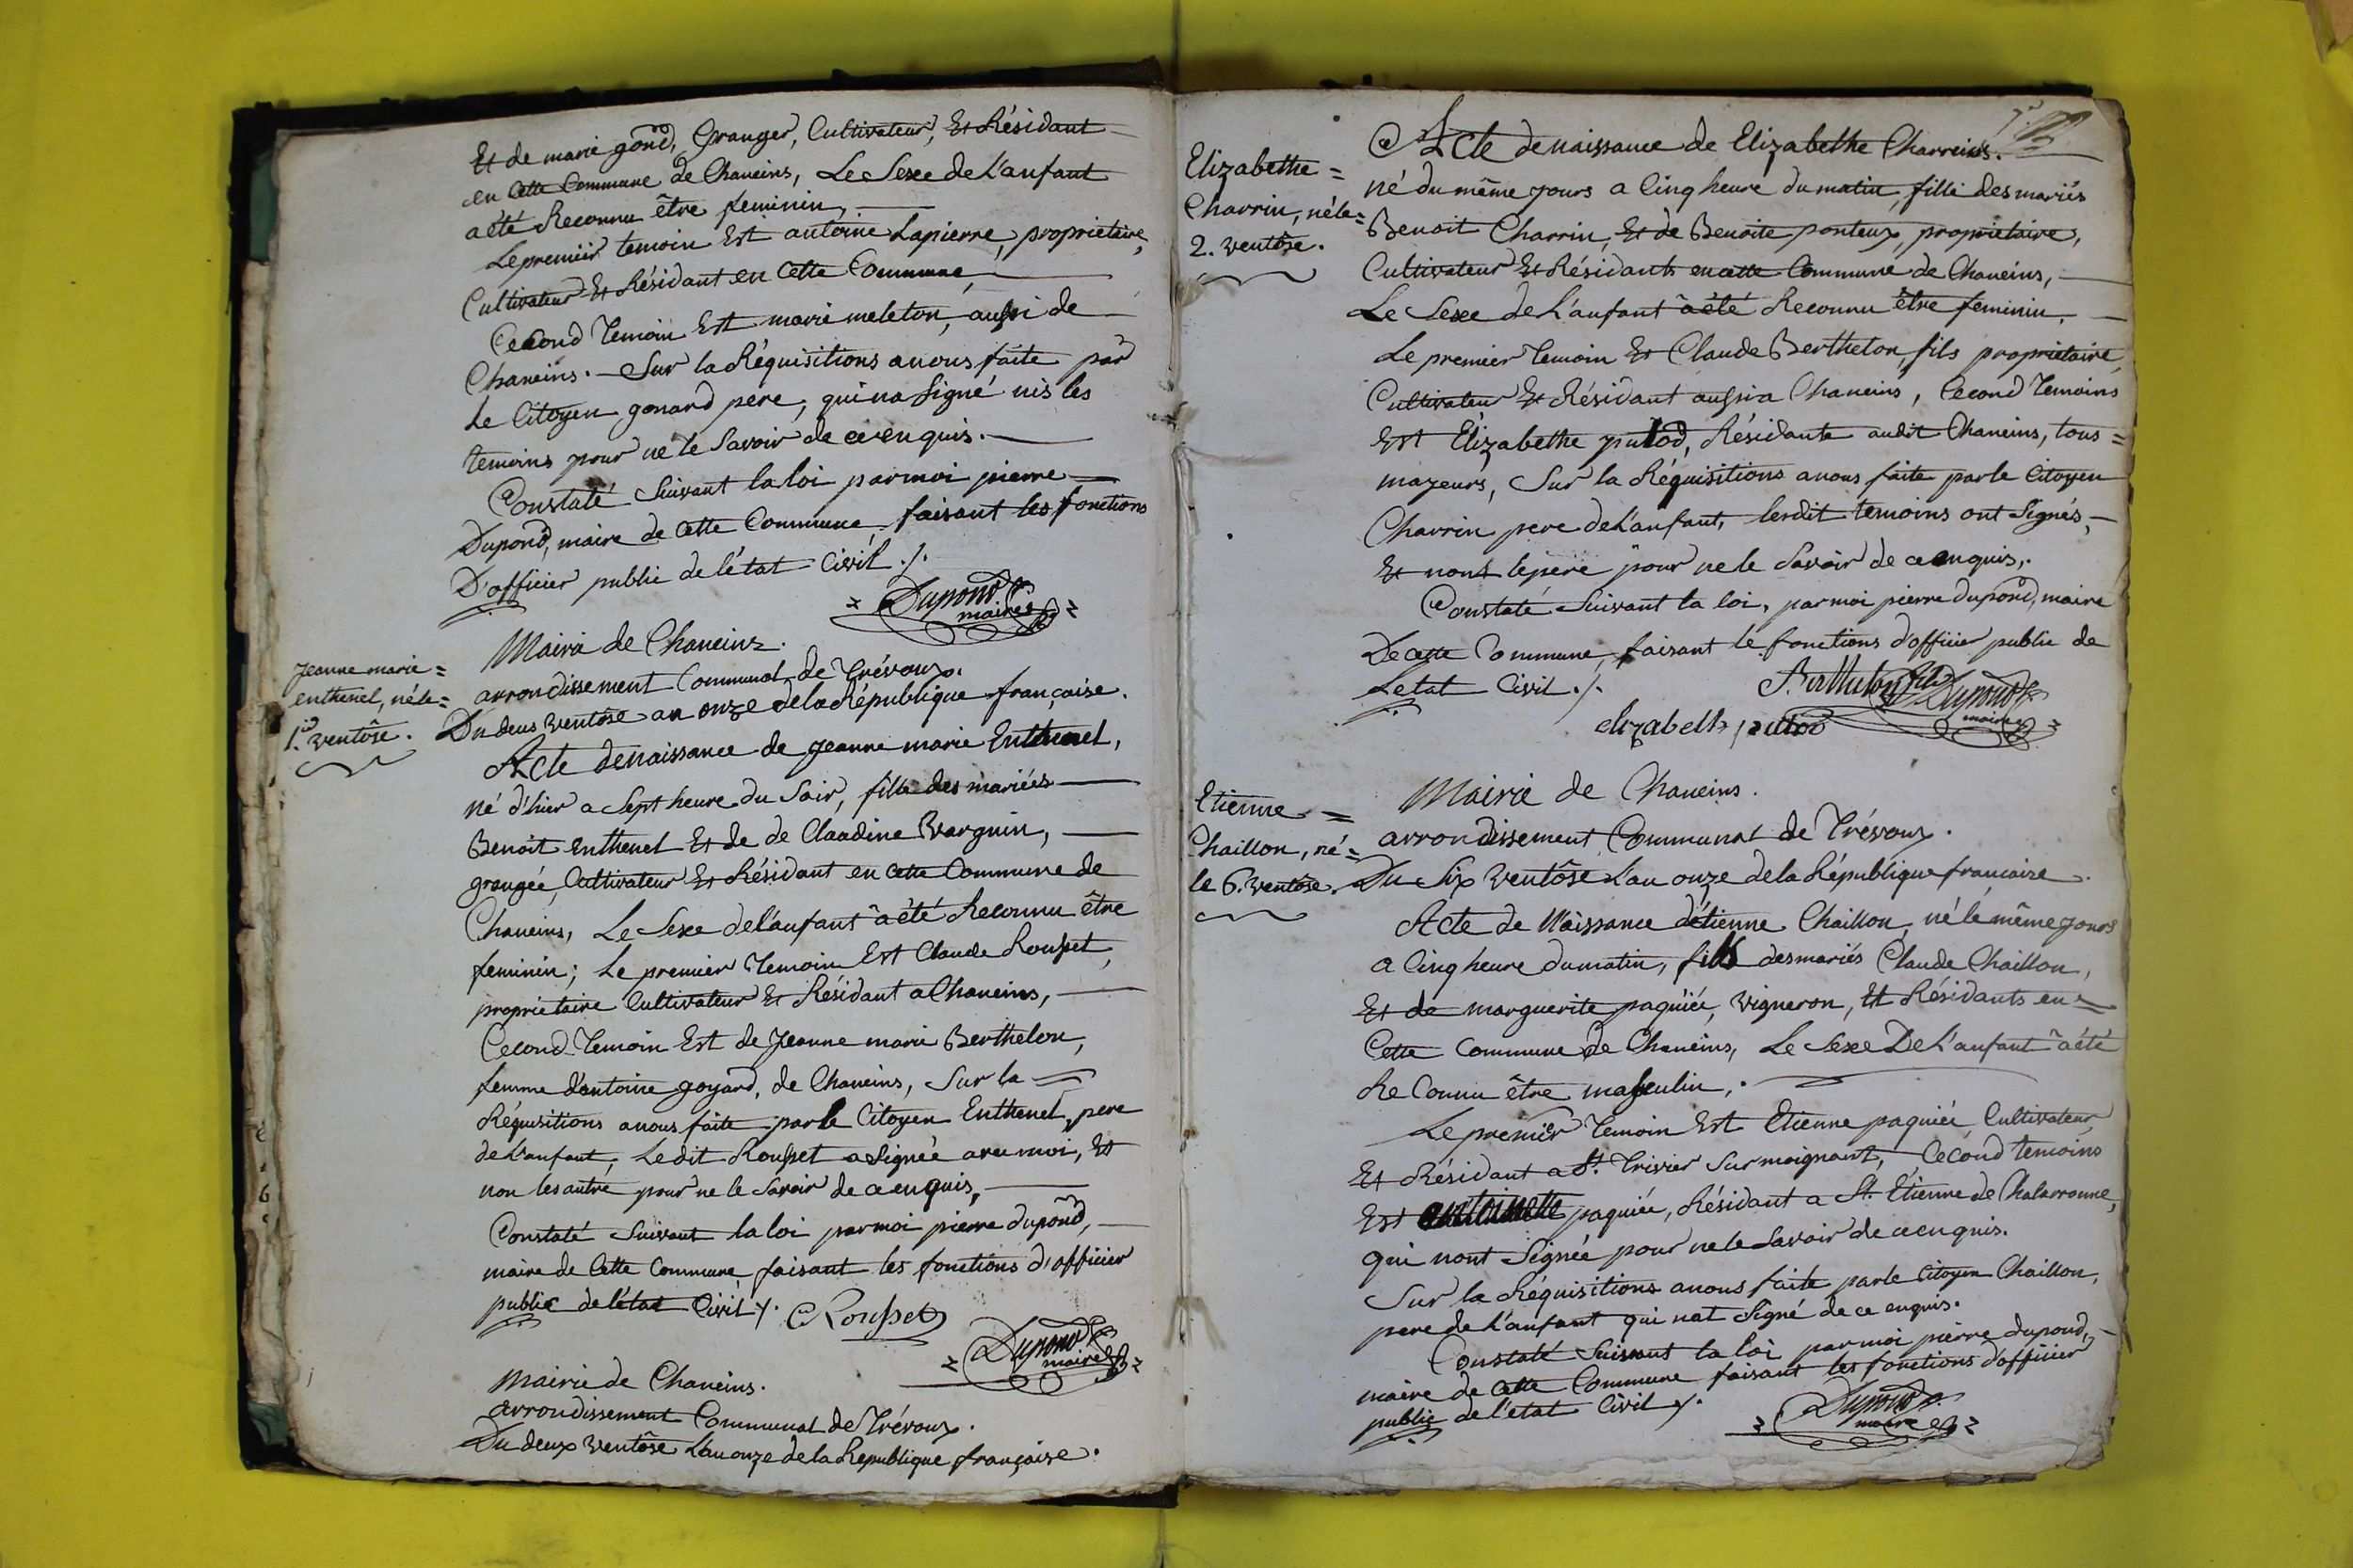 Et de marie gond, Granger, Cultivateur, Et Résidant
en Cette Commune de Chaneins, Le Sexe de L'anfant
a été Reconnu être feminin,
Le premier temoin Est antoine Lapierre, propriétaire,
Cultivateur Et Résidant en Cette Commune,
Cecond Temoin Est marie meleton, aussi de
Chaneins. Sur la Réquisitions a nous faite par
Le Citoyen gonard pere, qui na Signé nis les
temoins pour ne le Savoir de ce enquis.
Constaté Suivant la loi par moi pierre
Dupond, maire de Cette Commune, faisant les fonctions
D'officier public de l'état Civil ./.
Dupond
maire
Jeanne marie =
enthenel, né le =
1.er ventôse.
Mairie de Chaneins.
arrondissement Communal de Trévoux.
Du deux ventôse an onze de la République française.
Acte de naissance de Jeanne marie Enthenel,
né d'hier a Sept heure du Soir, fille des mariées
Benoit Enthenel Et de de Claudine Varguin,
grangée, Cultivateur Et Résidant en Cette Commune de
Chaneins, Le Sexe de l'anfant a été Reconnu être
feminin; Le premier Temoin Est Claude Rousset,
propriétaire Cultivateur Et Résidant a Chaneins,
Cecond Temoin Est de Jeanne marie Berthelon,
femme d'antoine goyard, de Chaneins, Sur la
Réquisitions a nous faite par le Citoyen Enthenel, pere
de L'anfant, Ledit Rousset a Signée avec moi, Et
non les autre pour ne le Savoir de ce enquis,
Constaté Suivant la loi par moi pierre dupond,
maire de Cette Commune, faisant les fonctions d'officier
public de l'état Civil ./. Rousset
Dupond
maire
Mairie de Chaneins.
arrondissement Communal de Trévoux.
Du deux ventôse L'an onze de la République française.
Elizabethe =
Charrin, né le =
2. ventôse.
Acte de naissance de Elizabethe Charreins.
né du même jours a Cinq heure du matin, fille des mariés
Benoit Charrin, Et de Benoite ponteux, propriétaire,
Cultivateur Et Résidants en cette Commune de Chaneins,
Le Sexe de L'anfant a été Reconnu être feminin,
Le premier Temoin Et Claude Berthelon, fils propriétaire
Cultivateur Et Résidant aussi a Chaneins, Cecond Temoins
Est Elizabethe putod, Résidante audit Chaneins, tous =
mayeurs, Sur la Réquisitions a nous faite par le Citoyen
Charrin pere de L'anfant, lesdit temoins ont Signés,
Et nont le pere pour ne le Savoir de ce enquis,.
Constaté Suivant la loi, par moi pierre dupond, maire
De cette Commune, faisant le fonctions d'officier public de
Letat Civil ./.
Berthelon fils Dupond
maire
elizabeth putod
Etienne =
Chaillon, né =
le 6. ventôse.
Mairie de Chaneins.
arrondissement Communal de Trévoux.
Du Six ventôse L'an onze de la République francaise.
Acte de Naissance d'étienne Chaillon, né le même jours
a Cinq heure du matin, fils des mariés Claude Chaillon,
Et de marguerite paquiée, Vigneron, Et Résidants en =
Cette Commune de Chaneins, Le Sexe De L'anfant a été
Reconnu être masculin,.
Le premier Temoin Est Etienne paquiée Cultivateur
Et Résidant a St. Trivier Sur moignant, Cecond temoins
Est antoinette paquiée, Résidant a St. Etienne de Chalaronne,
qui nont Signée pour ne le Savoir de ce enquis.
Sur la Réquisitions a nous faite par le Citoyen Chaillon,
pere de L'anfant qui nat Signé de ce enquis.
Constaté Suivant la loi par moi pierre dupond,
maire de Cette Commune faisant les fonctions d'officier
public de l'état Civil ./.
Dupond
maire